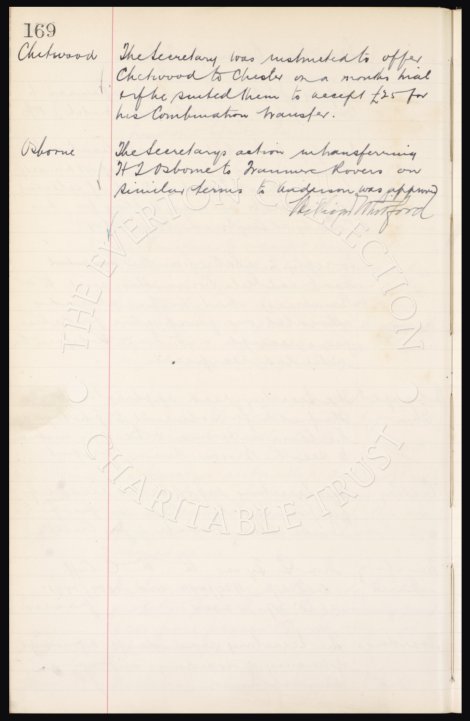 169
Chetwood The Secretary was instructed to offer
Chetwood to Chester on a months trial
& if he suited them to accept £25 for
his Combination transfer.
Osborne The Secretarys action in transferring
H L Osborne to Tranmere Rovers on
similar terms to Anderson was approved
William Whitford
THE EVERTON COLLECTION
CHARITABLE TRUST